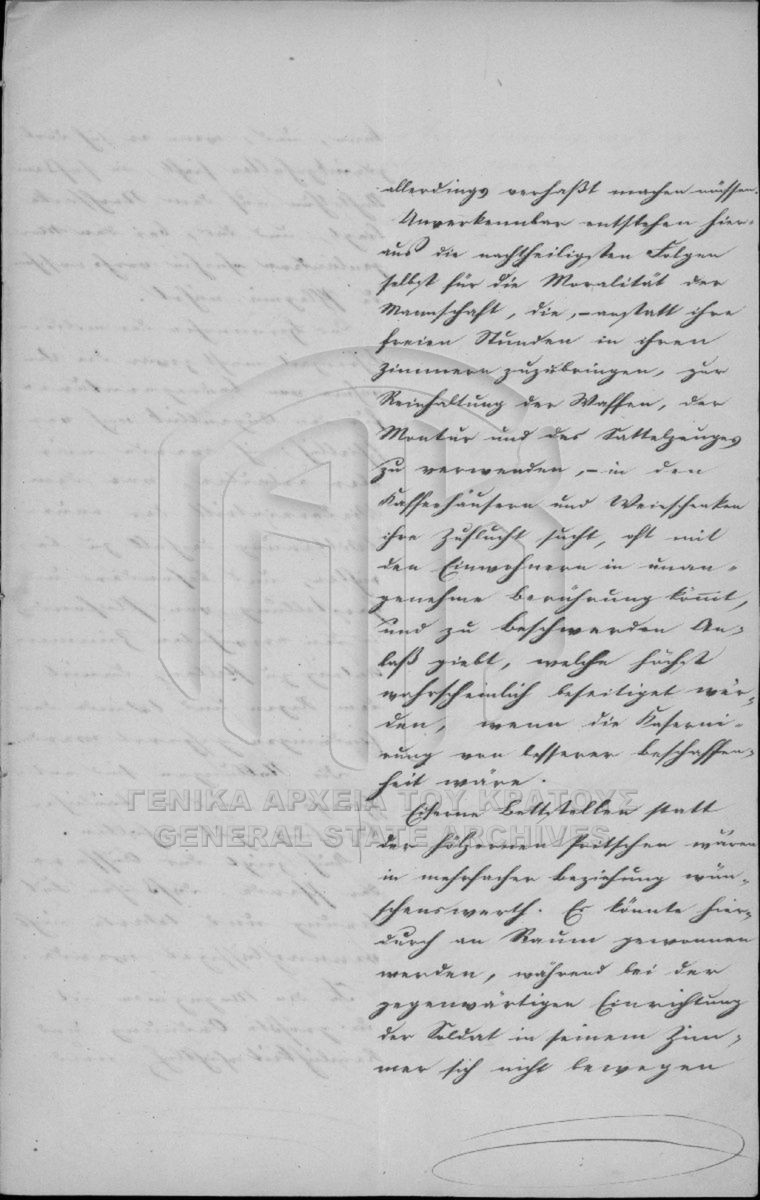 allerdings verhaßt machen müssen.
Unverkennbar entstehen hier-
aus die nachtheiligsten Folgen
selbst für die Moralität der
Mannschaft, die, – anstatt ihre
freien Stunden in ihren
Zimmern zuzubringen, zur
Reinhaltung der Waffen, der
Montur und des Sattelzeuges
zu verwenden, – in den
Kaffeehäusern und Weinschenken
ihre Zuflucht sucht, oft mit
den Einwohnern in unan-
genehme Berührung kömmt,
und zu Beschwerden An-
laß giebt, welche höchst
wahrscheinlich beseitiget wür-
den, wenn die Kaserni-
rung von besserer Beschaffen-
heit wäre.
Eiserne Bettstellen statt
der hölzernen Pritschen wären
in mehrfacher Beziehung wün-
schenswerth. Es könnte hier-
durch an Raum gewonnen
werden, während bei der
gegenwärtigen Einrichtung
der Soldat in seinem Zim-
mer sich nicht bewegen
ΓΕΝΙΚΑ ΑΡΧΕΙΑ ΤΟΥ ΚΡΑΤΟΥΣ
GENERAL STATE ARCHIVES